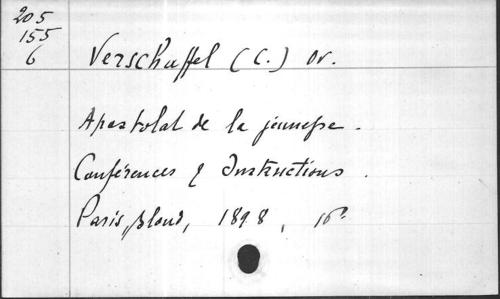 205
155
6
Verschaffel (C.) Or.
Apostolat de la jeunesse.
Conférences & Instructions.
Paris, Bloud, 1898, 16°